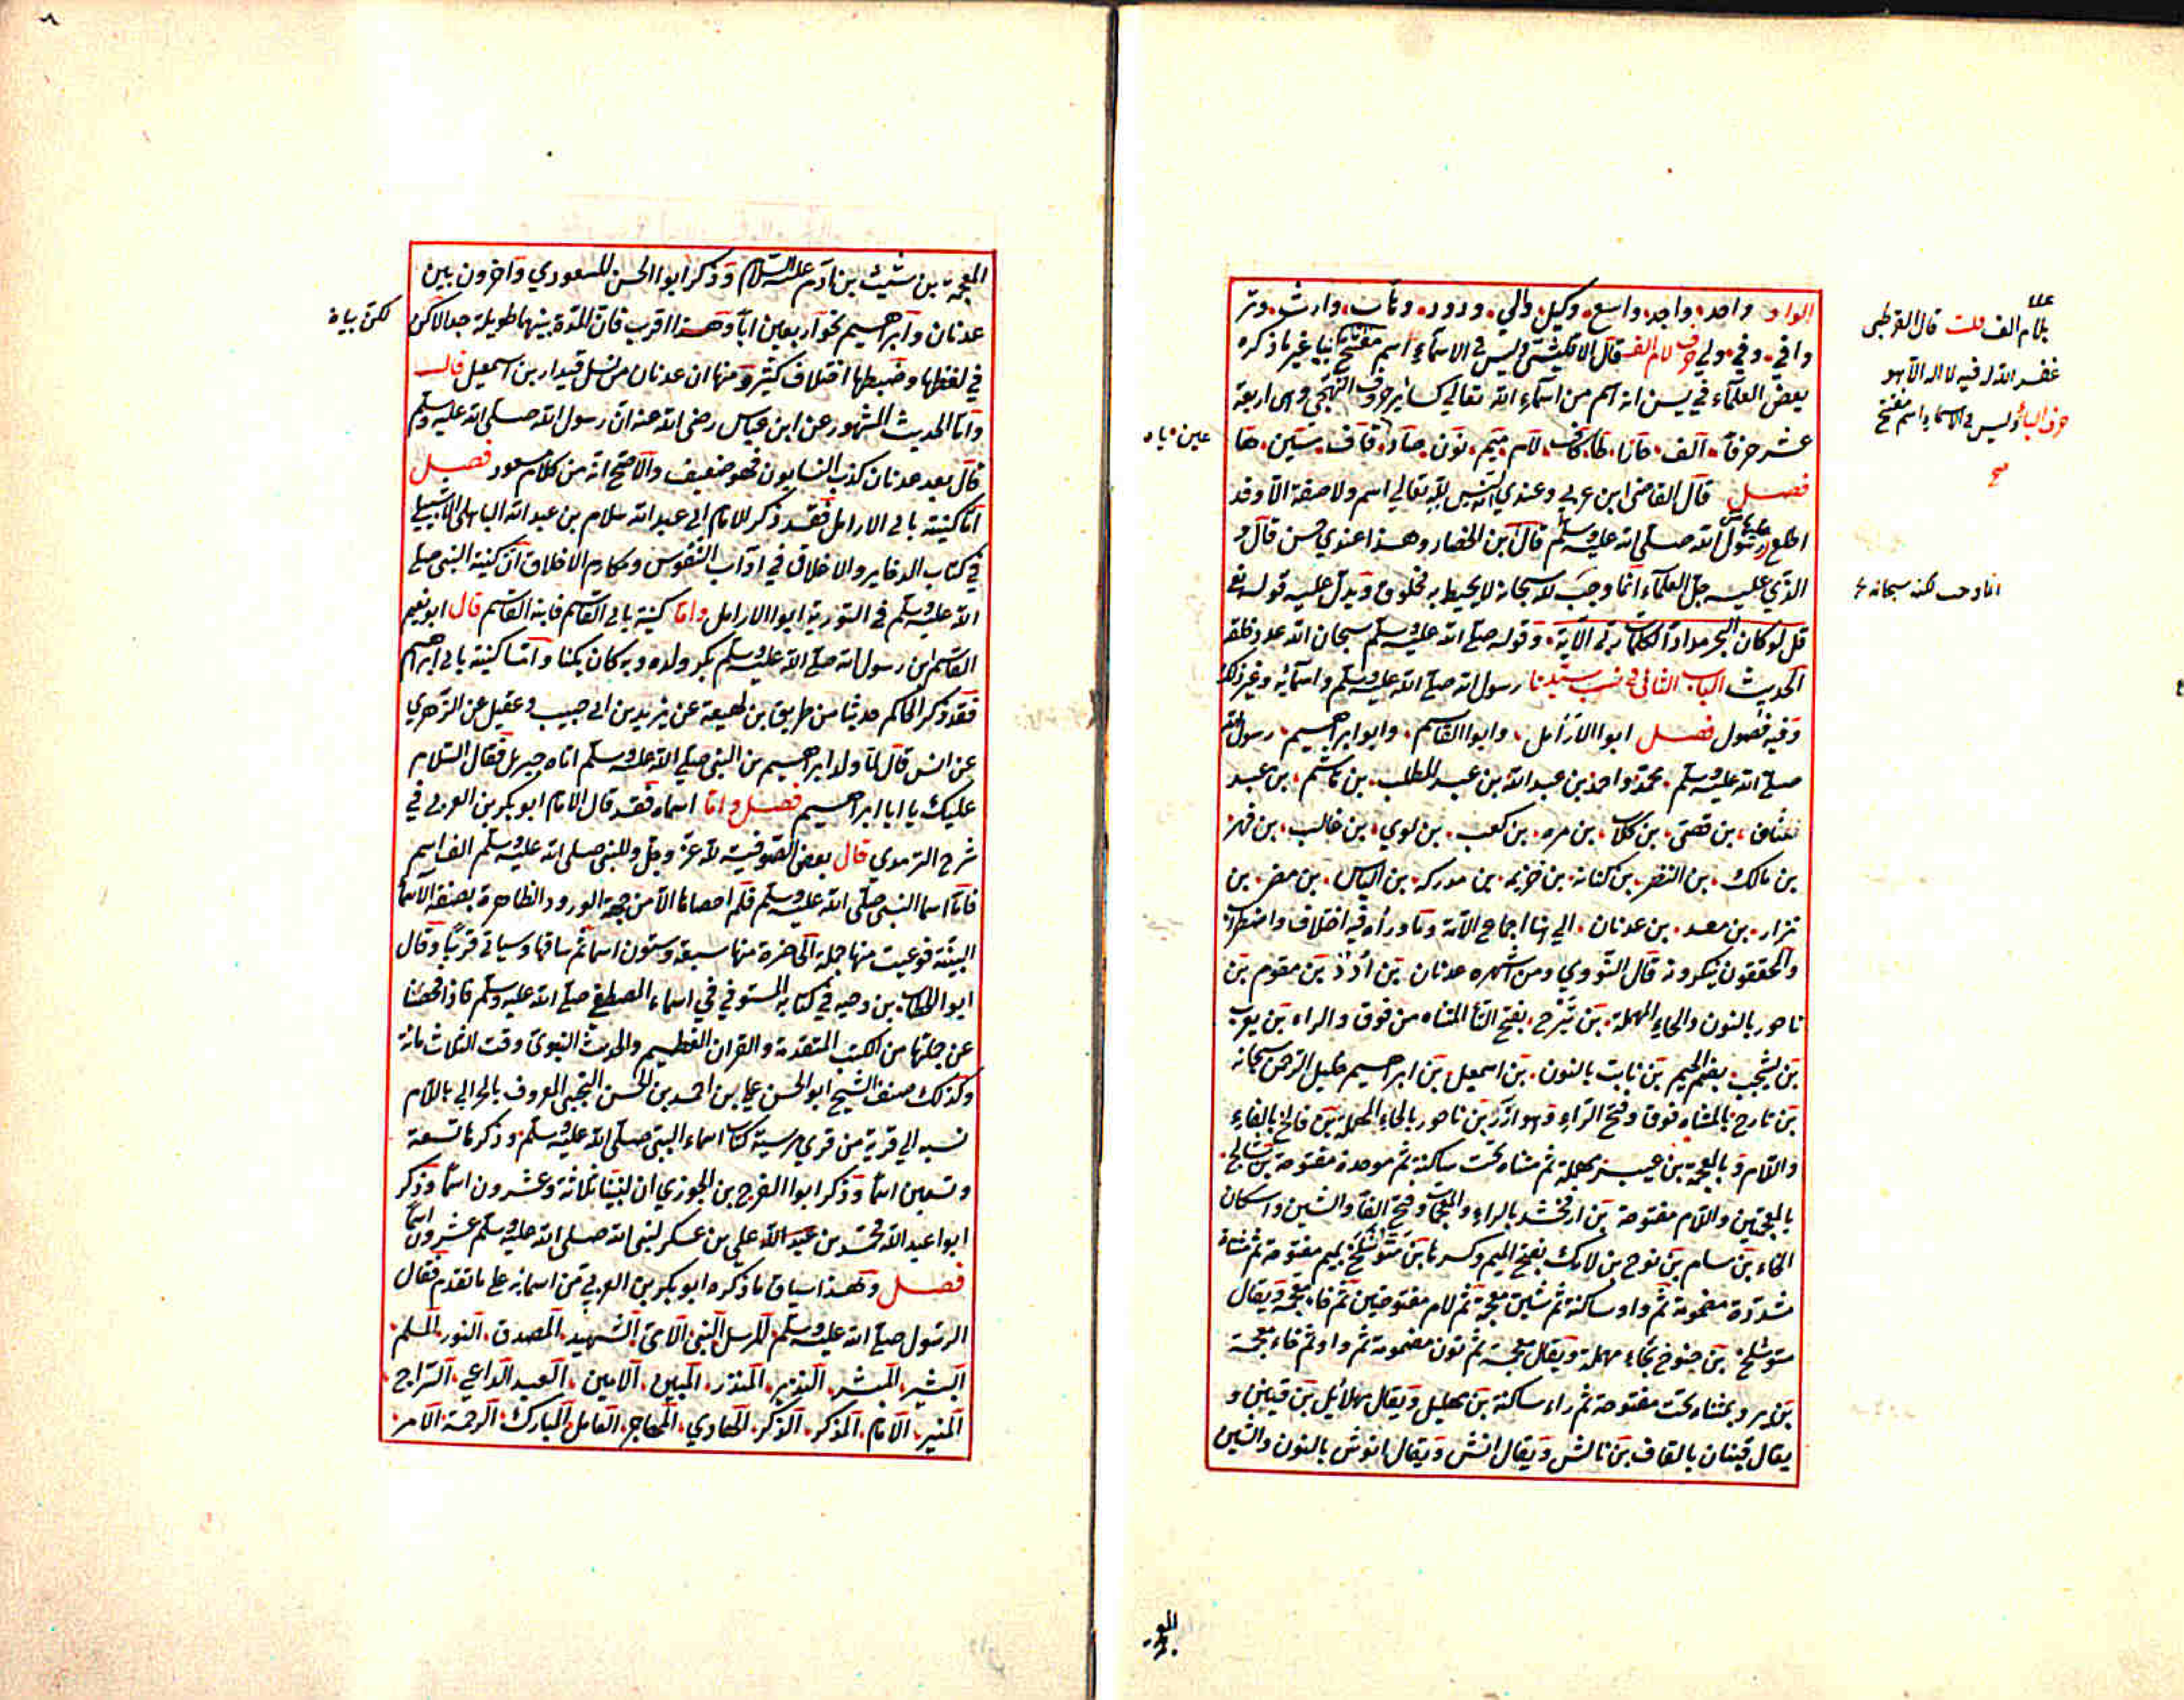 الواو واحد، واجد، واسع، وكيل، والي، ودود، وهاب، وارث، وتر
وافي، وفي، ولي حرف لام الف قال الاقليشي وليس في الاسماء اسم مفتتح بها غير ما ذكره
بعض العلماء في يسن انه اسم من اسماء الله تعالى كسائر حروف التهجي وهي اربعة
عشر حرفا، الف، حا، را، طا، كاف، لام، ميم، نون، صاد، قاف، سين، ها
فصل قال القاضي ابن عربي وعندي انه ليس لله تعالى اسم ولا صفة الا وقد
اطلع رسول الله صلى الله عليه وسلم قال ابن الحصار وهذا عندي حسن قال و
الذي عليه جل العلماء انما وجب لله سبحانه لا يحيط به مخلوق ويدل عليه قوله تع
قل لو كان البحر مدادا لكلمات ربي الآية، وقوله صلى الله عليه وسلم سبحان الله عدد خلقه
الحديث الباب الثاني في نسب سيدنا رسول الله صلى الله عليه وسلم واسمائه وغير ذلك
وفيه فصول فصل ابوا الارامل، وابوا القاسم، وابو ابراهيم، رسول الله
صلى الله عليه وسلم، محمد واحمد بن عبد الله بن عبد المطلب، بن هاشم، بن عبد
مناف، بن قصي، بن كلاب، بن مره، بن كعب، بن لوي، بن غالب، بن فهر،
بن مالك، بن النضر، بن كنانه، بن خزيمه، بن مدركه، بن الياس، بن مضر، بن
نزار، بن معد، بن عدنان، الى هنا اجماع الامة وما وراه فيه اختلاف واضطراب
والمحققون ينكرونه قال النووي ومن اشهره عدنان بن أدد بن مقوم بن
ناحور بالنون والحاء المهملة، بن تيرح، بفتح التا المثناه من فوق والراء بن يعرب
بن يشجب، بضم الجيم بن نابت بالنون، بن اسمعيل، بن ابراهيم خليل الرحمن سبحانه
بن تارح بالمثناه فوق وفتح الراء وهو آزر بن ناحور بالحاء المهملة بن فالخ بالفاء
واللام وبالمعجمة بن عيبر بمهملة ثم مثناه تحت ساكنة ثم موحدة مفتوحة بن شالخ،
بالمعجمتين واللام مفتوحة بن ارفخشد بالراء والمعجمات وفتح الفا والشين واسكان
الخاء بن سام بن نوح بن لامك بفتح الميم وكسرها بن متوشلخ بميم مفتوحة ثم مثناة
مشددة مضمومة ثم واو ساكنة ثم شين معجمة ثم لام مفتوحتين ثم خاء معجمة ويقال
متوشلخ، بن حنوخ بحاء مهملة ويقال معجمة ثم نون مضمومة ثم واو ثم خاء معجمة
بن يرد بمثناه تحت مفتوحة ثم راء ساكنة بن مهليل ويقال مهلائيل بن قينين و
يقال قينان بالقاف بن يانش ويقال انش ويقال انوش بالنون والشين
بلام الف قلت قال القرطبي
غفر الله له فيه لا اله الا هو
حرف اليا وليس في الاسماء اسم مفتتح
صح
عين، يا،
المعجمة بن شيث بن ادم عليه السلام وذكر ابوا الحسن المسعودي واخرون بين
عدنان وابراهيم نحو اربعين ابا وهذا اقرب فان المدة بينهما طويلة جدا لاكن
في لفظها وضبطها اختلاف كثير ومنها ان عدنان من نسل قيدار بن اسمعيل قال
واما الحديث المشهور عن ابن عباس رضي الله عنه ان رسول الله صلى الله عليه وسلم
قال بعد عدنان كذب النسابون فهو ضعيف والاصح انه من كلام مسعود فصل
اما كنيته بابي الارامل فقد ذكر الامام ابي عبد الله سلام بن عبد الله الباهلي الاشبيلي
في كتاب الذخاير والاخلاق في اداب النفوس ومكارم الاخلاق ان كنية النبي صلى
الله عليه وسلم في التورية ابوا الارامل واما كنيته بابي القاسم فابنه القاسم قال ابو نعيم
القاسم ابن رسول الله صلى الله عليه وسلم بكر ولده وبه كان يكنا واما كنيته بابي ابراهيم
فقد ذكر الحاكم حديثا من طريق بن لهيعة عن يزيد بن ابي حبيب وعقيل عن الزهري
عن انس قال لما ولد ابراهيم من النبي صلى الله عليه وسلم اتاه جبريل فقال السلام
عليك يا ابا ابراهيم فصل واما اسماه فقد قال الامام ابو بكر بن العربي في
شرح الترمدي قال بعض الصوفية لله عز وجل وللنبي صلى الله عليه وسلم الف اسم
فاما اسما النبي صلى الله عليه وسلم فلم احصها الا من جهة الورود الظاهرة بصنعة الاسما
البينة فوعيت منها جملة الحاضرة منها سبعة وستون اسما ثم ساقها وسياتي قريبا وقال
ابو الخطاب بن دحيه في كتابه المستوفي في اسماء المصطفى صلى الله عليه وسلم فاذا فحصنا
عن جملتها من الكتب المتقدمة والقران العظيم والحديث النبوي وفت الثلاث مائة
وكذلك صنف الشيخ ابو الحسن علي بن احمد بن الحسن التجيبي المعروف بالحرالي باللام
نسبه الى قرية من قرى مرسية كتاب اسماء النبي صلى الله عليه وسلم، وذكرها تسعة
وتسعين اسما وذكر ابوا الفرج بن الجوزي ان لنبينا ثلاثة وعشرون اسما وذكر
ابوا عبد الله محمد بن عبد الله علي بن عسكر لنبي الله صلى الله عليه وسلم عشرون اسما
فصل وهذا سياق ما ذكره ابو بكر بن العربي من اسمائه على ما تقدم فقال
الرسول صلى الله عليه وسلم، المرسل، النبي، الامي، الشهيد، المصدق، النور، المسلم،
البشير، المبشر، النذير، المنذر، المبين، الامين، العبد، الداعي، السراج،
المنير، الامام، المذكر، الذكر، الهادي، المهاجر، العامل، المبارك، الرحمة، الامر،